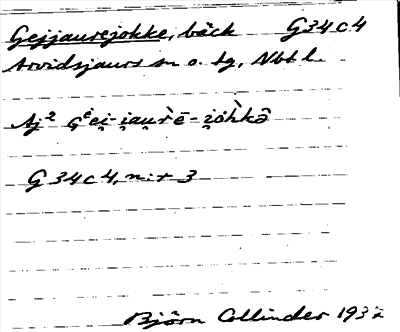 Gejjaurejokke, bäck G34c4
Arvidsjaurs sn o. tg, Nbt l.
Aj²
G34c4, nr 3
Björn Collinder 1932